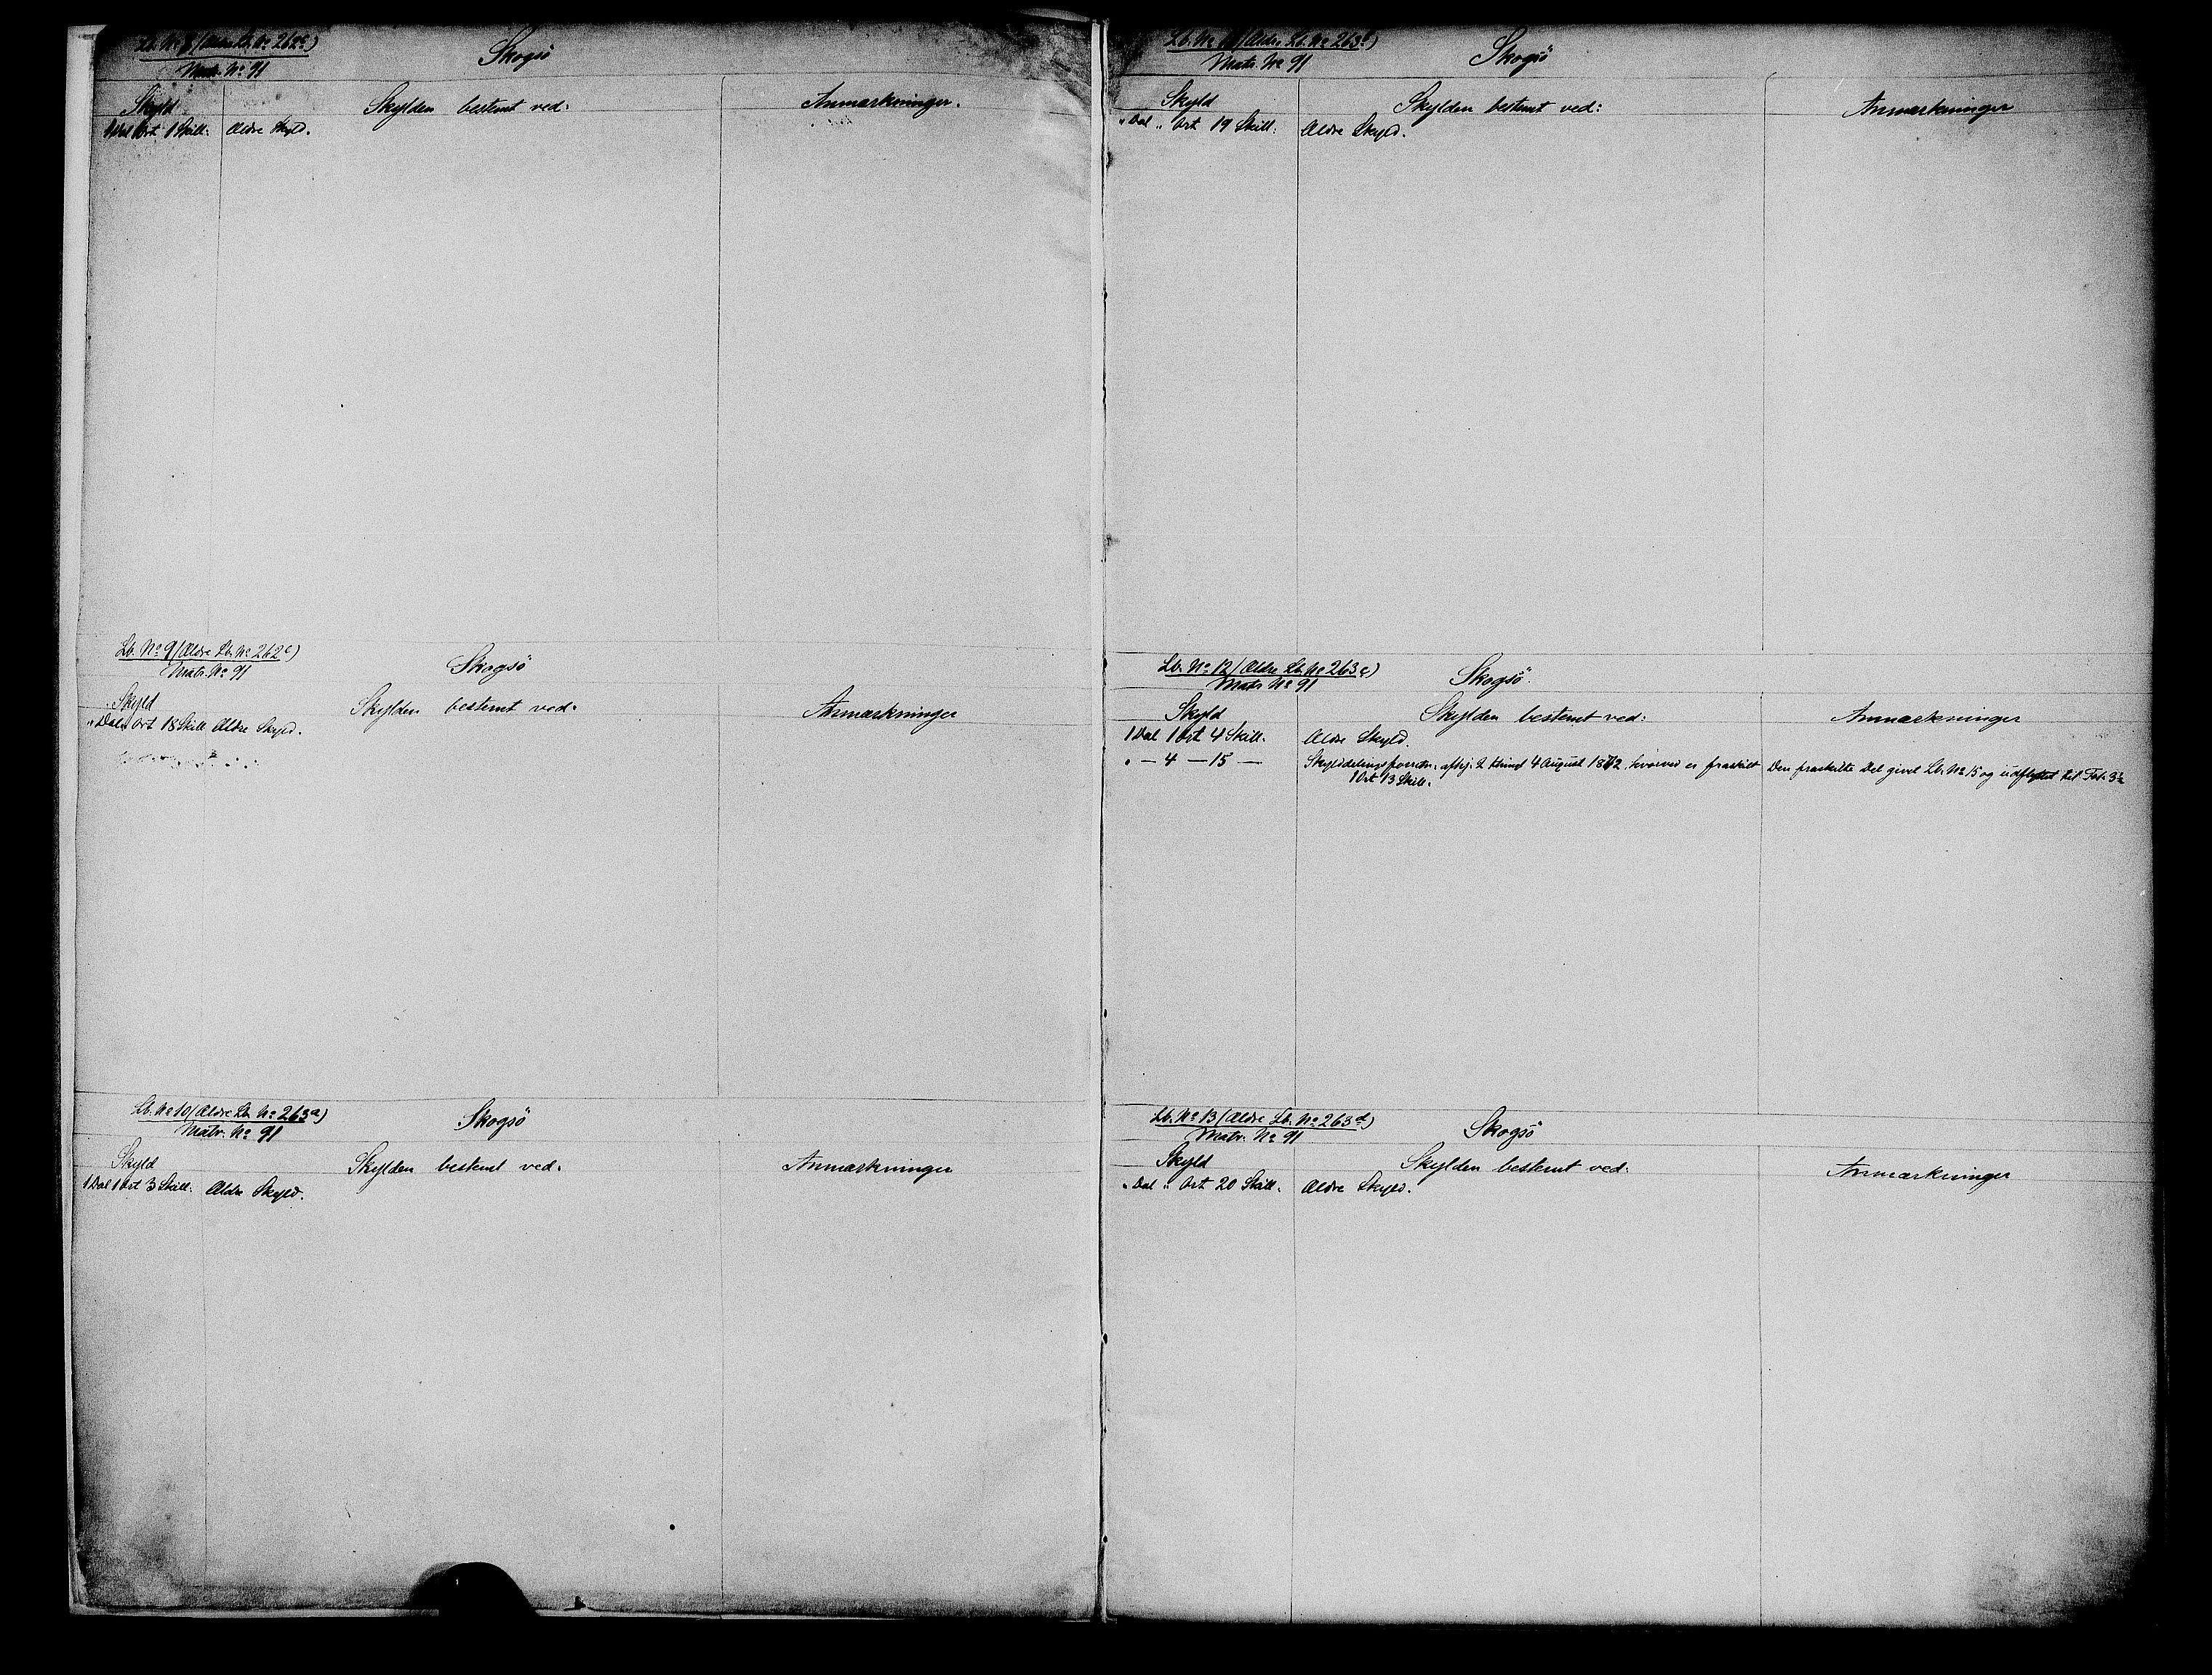 Lb. No 8 (Ældre Lb. No 262
Matr. No 91
Skogsö
Skyld
Skylden bestemt ved:
Anmærkninger.
Dal Ort 1 Skill. Ældre Skyld.
Lb. No 9 (Ældre Lb. No 262c)
Matr. No 91
Skogsö
Skyld
Skylden bestemt ved.
Anmærkninger
" Dal Ort 18 Skill Ældre Skyld.
Lb. No 10 (Ældre Lb. No 263a)
Matr. No 91
Skogsö
Skyld
Skylden bestemt ved.
Anmærkninger
1 Dal 1 Ort 3 Skill. Ældre Skyld.
Lb. No (Ældre Lb. No 263b)
Matr. No 91
Skogsö
Skyld
Skylden bestemt ved:
Anmærkninger
" Dal " Ort 19 Skill. Ældre Skyld.
Lb. No 12 (Ældre Lb. No 263c)
Matr No 91
Skogsö.
Skyld
Skylden bestemt ved:
Anmærkninger
1 Dal 1 Ort 4 Skill. Ældre Skyld.
" — 4 — 15 — Skylddelingsforretn. afhj. 2 thingl 4 August 1872, hvorved er fraskilt Den fraskilte Del givet Lb. No 15 og udflyttet til Fol. 3½
1 Ort 13 Skill.
Lb. No 13 (Ældre Lb. No 263d)
Matr. No 91
Skogsö
Skyld
Skylden bestemt ved.
Anmærkninger
" Dal " Ort 20 Skill. Ældre Skyld.